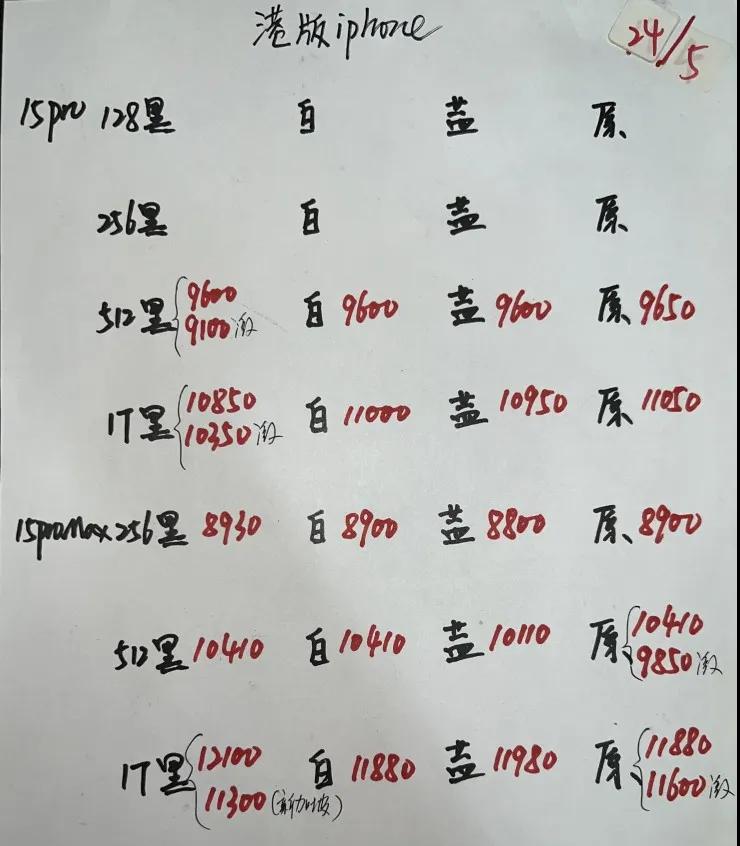 港版iphone
24/5
15pro 128黑 白 蓝 原
256黑 白 蓝 原
512黑 9600 9100激 白 9600 蓝 9600 原 9650
1T黑 10850 10350激 白 11000 蓝 10950 原 11050
15proMax 256黑 8930 白 8900 蓝 8800 原 8900
512黑 10410 白 10410 蓝 10110 原 10410 9850激
1T黑 12100 11300(新加坡) 白 11880 蓝 11980 原 11880 11600激